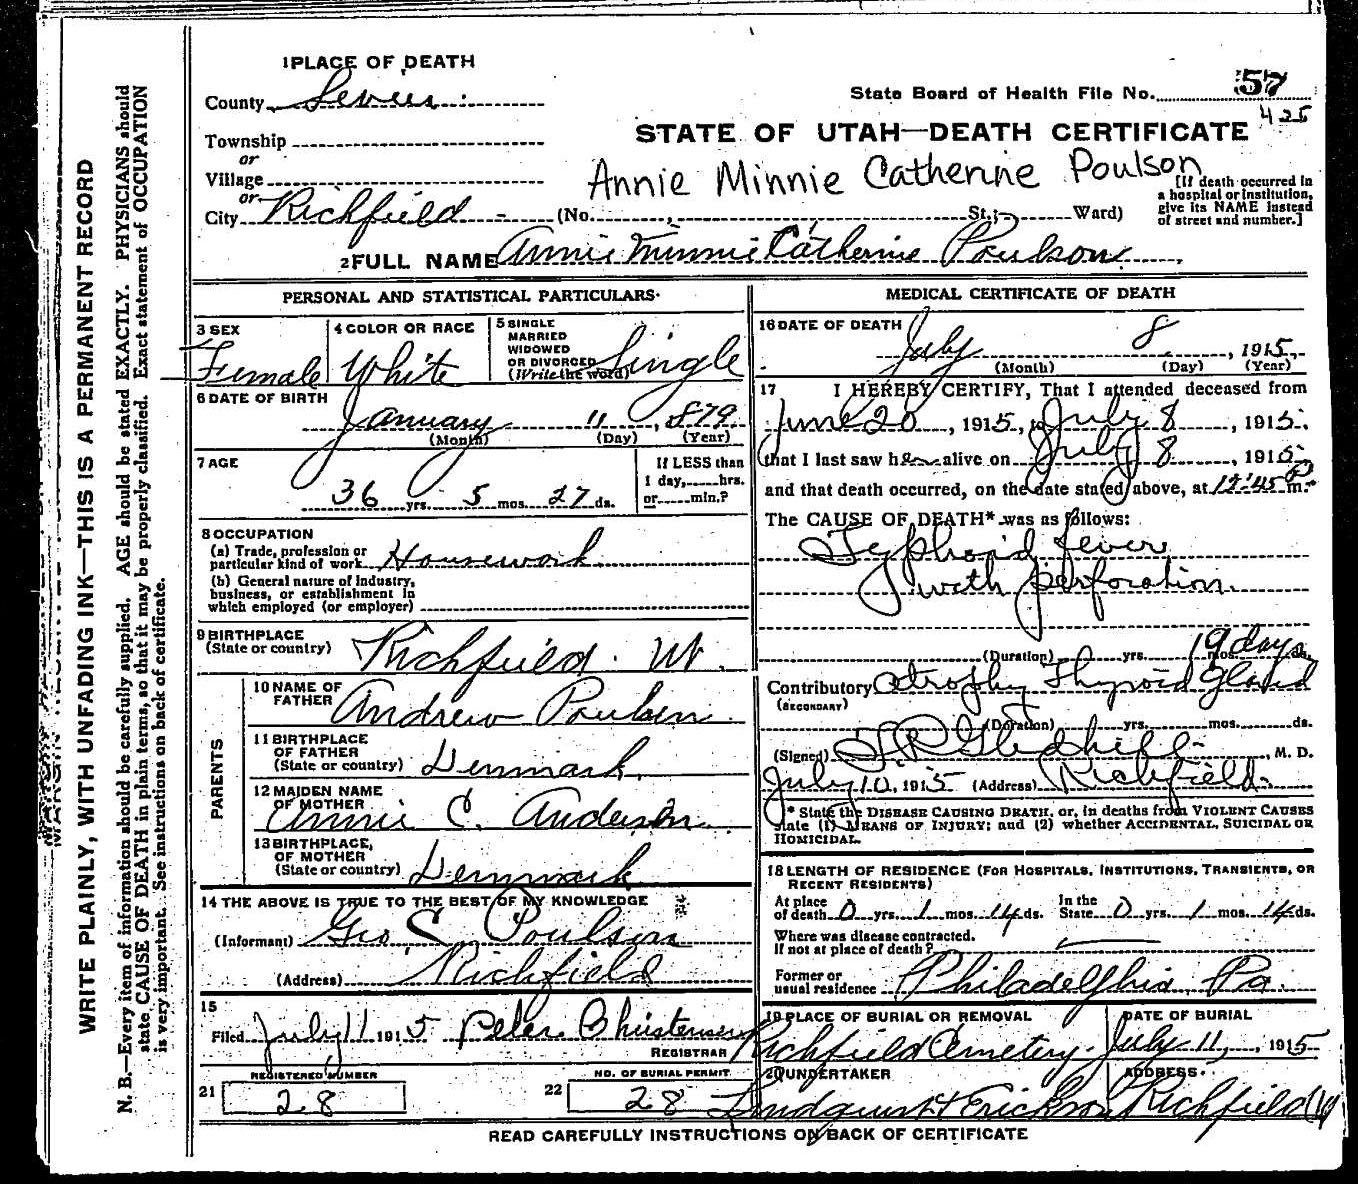 1 PLACE OF DEATH
County Sevier
State Board of Health File No. 57
425
Township
or
Village
or
City Richfield (No. St.; Ward)
STATE OF UTAH—DEATH CERTIFICATE
Annie Minnie Catherine Poulson
[If death occurred in
a hospital or institution,
give its NAME instead
of street and number.]
2 FULL NAME Annie Minnie Catherine Poulson
PERSONAL AND STATISTICAL PARTICULARS
3 SEX
Female
4 COLOR OR RACE
White
5 SINGLE
MARRIED
WIDOWED
OR DIVORCED
(Write the word) Single
6 DATE OF BIRTH
January 11, 1879
(Month) (Day) (Year)
7 AGE
36 yrs. 5 mos. 27 ds.
If LESS than
1 day, hrs.
or min.?
8 OCCUPATION
(a) Trade, profession or
particular kind of work Housework
(b) General nature of industry,
business, or establishment in
which employed (or employer)
9 BIRTHPLACE
(State or country) Richfield Ut.
PARENTS
10 NAME OF
FATHER Andrew Poulsen
11 BIRTHPLACE
OF FATHER
(State or country) Denmark
12 MAIDEN NAME
OF MOTHER
Annie C. Andersen
13 BIRTHPLACE,
OF MOTHER
(State or country) Denmark
14 THE ABOVE IS TRUE TO THE BEST OF MY KNOWLEDGE
(Informant) Geo C. Poulson
(Address) Richfield
15
Filed July 11 1915 Peter Christensen
REGISTRAR
21 REGISTERED NUMBER
28
22 NO. OF BURIAL PERMIT
28
MEDICAL CERTIFICATE OF DEATH
16 DATE OF DEATH
July 8, 1915
(Month) (Day) (Year)
17 I HEREBY CERTIFY, That I attended deceased from
June 20, 1915, to July 8, 1915,
that I last saw her alive on July 8, 1915
and that death occurred, on the date stated above, at 12:45 P m.
The CAUSE OF DEATH* was as follows:
Typhoid fever
with perforation
(Duration) yrs. mos. 19 days ds.
Contributory Atrophy Thyroid Gland
(SECONDARY)
(Duration) yrs. mos. ds.
(Signed) Gledhill, M. D.
July 10, 1915 (Address) Richfield
* State the DISEASE CAUSING DEATH, or, in deaths from VIOLENT CAUSES
state (1) MEANS OF INJURY; and (2) whether ACCIDENTAL, SUICIDAL OR
HOMICIDAL.
18 LENGTH OF RESIDENCE (FOR HOSPITALS, INSTITUTIONS, TRANSIENTS, OR
RECENT RESIDENTS)
At place
of death 0 yrs. 1 mos. 14 ds. In the
State 0 yrs. 1 mos. 14 ds.
Where was disease contracted.
If not at place of death?
Former or
usual residence Philadelphia, Pa.
19 PLACE OF BURIAL OR REMOVAL
Richfield Cemetery
DATE OF BURIAL
July 11, 1915
20 UNDERTAKER
Lindquist & Erickson
ADDRESS
Richfield
READ CAREFULLY INSTRUCTIONS ON BACK OF CERTIFICATE
WRITE PLAINLY, WITH UNFADING INK—THIS IS A PERMANENT RECORD
N. B.—Every item of information should be carefully supplied. AGE should be stated EXACTLY. PHYSICIANS should
state CAUSE OF DEATH in plain terms, so that it may be properly classified. Exact statement of OCCUPATION
is very important. See instructions on back of certificate.